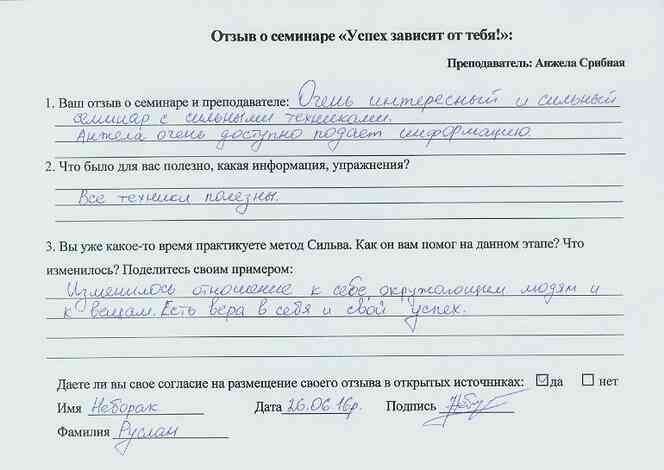 Отзыв о семинаре «Успех зависит от тебя!»:
Преподаватель: Анжела Срибная
1. Ваш отзыв о семинаре и преподавателе: Очень интересный и сильный
семинар с сильными техниками.
Анжела очень доступно подает информацию
2. Что было для вас полезно, какая информация, упражнения?
Все техники полезны.
3. Вы уже какое-то время практикуете метод Сильва. Как он вам помог на данном этапе? Что
изменилось? Поделитесь своим примером:
Изменилось отношение к себе, окружающим людям и
к вещам. Есть вера в себя и свой успех.
Даете ли вы свое согласие на размещение своего отзыва в открытых источниках: да нет
Имя Неборак Дата 26.06.16р. Подпись
Фамилия Руслан